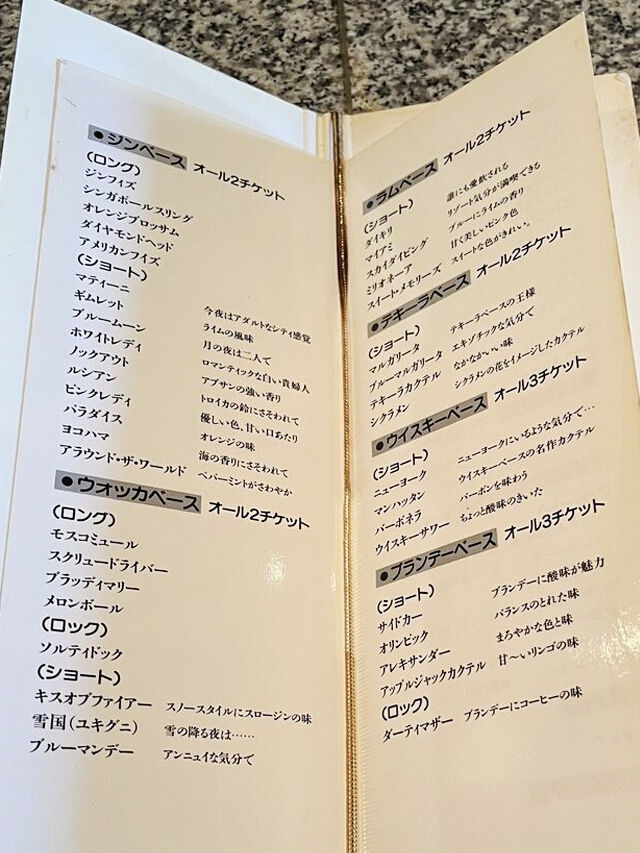 ●ジンベース オール2チケット
(ロング)
ジンフィズ
シンガポールスリング
オレンジブロッサム
ダイヤモンドヘッド
アメリカンフィズ
(ショート)
マティーニ 今夜はアダルトなシティ感覚
ギムレット ライムの風味
ブルームーン 月の夜は二人で
ホワイトレディ ロマンティックな白い貴婦人
ノックアウト アブサンの強い香り
ルシアン トロイカの鈴にさそわれて
ピンクレディ 優しい色、甘い口あたり
パラダイス オレンジの味
ヨコハマ 海の香りにさそわれて
アラウンド・ザ・ワールド ペパーミントがさわやか
●ウォッカベース オール2チケット
(ロング)
モスコミュール
スクリュードライバー
ブラッディマリー
メロンボール
(ロック)
ソルティドック
(ショート)
キスオブファイアー スノースタイルにスロージンの味
雪国(ユキグニ) 雪の降る夜は……
ブルーマンデー アンニュイな気分で
●ラムベース オール2チケット
(ショート)
ダイキリ 誰にも愛飲される
マイアミ リゾート気分が満喫できる
スカイダイビング ブルーにライムの香り
ミリオネーア 甘く美しいピンク色
スイート・メモリーズ スイートな色がきれい。
●テキーラベース オール2チケット
(ショート)
マルガリータ テキーラベースの王様
ブルーマルガリータ エキゾチックな気分で
テキーラカクテル なかなかいい味
シクラメン シクラメンの花をイメージしたカクテル
●ウイスキーベース オール3チケット
(ショート)
ニューヨーク ニューヨークにいるような気分で…
マンハッタン ウイスキーベースの名作カクテル
バーボネラ バーボンを味わう
ウイスキーサワー ちょっと酸味のきいた
●ブランデーベース オール3チケット
(ショート)
サイドカー ブランデーに酸味が魅力
オリンピック バランスのとれた味
アレキサンダー まろやかな色と味
アップルジャックカクテル 甘〜いリンゴの味
(ロック)
ダーティマザー ブランデーにコーヒーの味